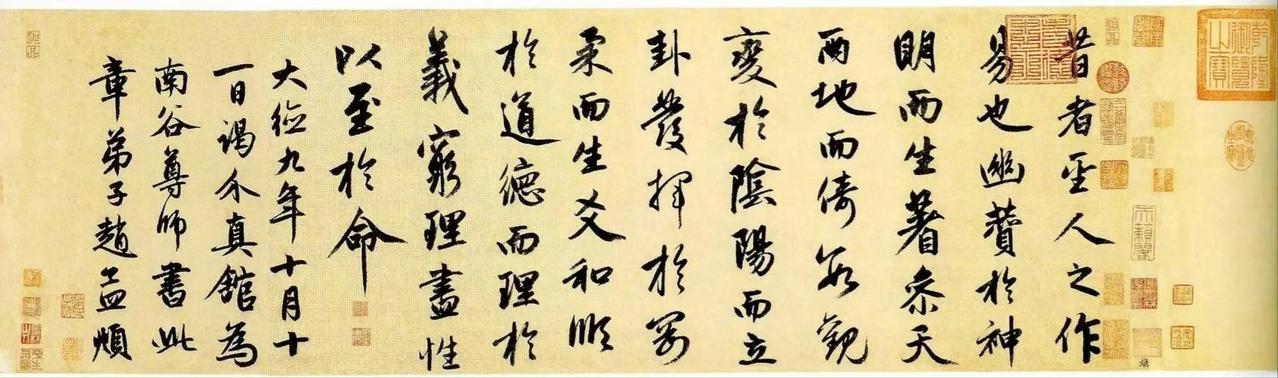 乾隆御覽之寶
天籟閣
昔者聖人之作
易也幽贊於神
明而生蓍參天
兩地而倚數觀
變於陰陽而立
卦發揮於剛
柔而生爻和順
於道德而理於
義窮理盡性
以至於命
大德九年十月十
一日謁介真館為
南谷尊師書此
章弟子趙孟頫